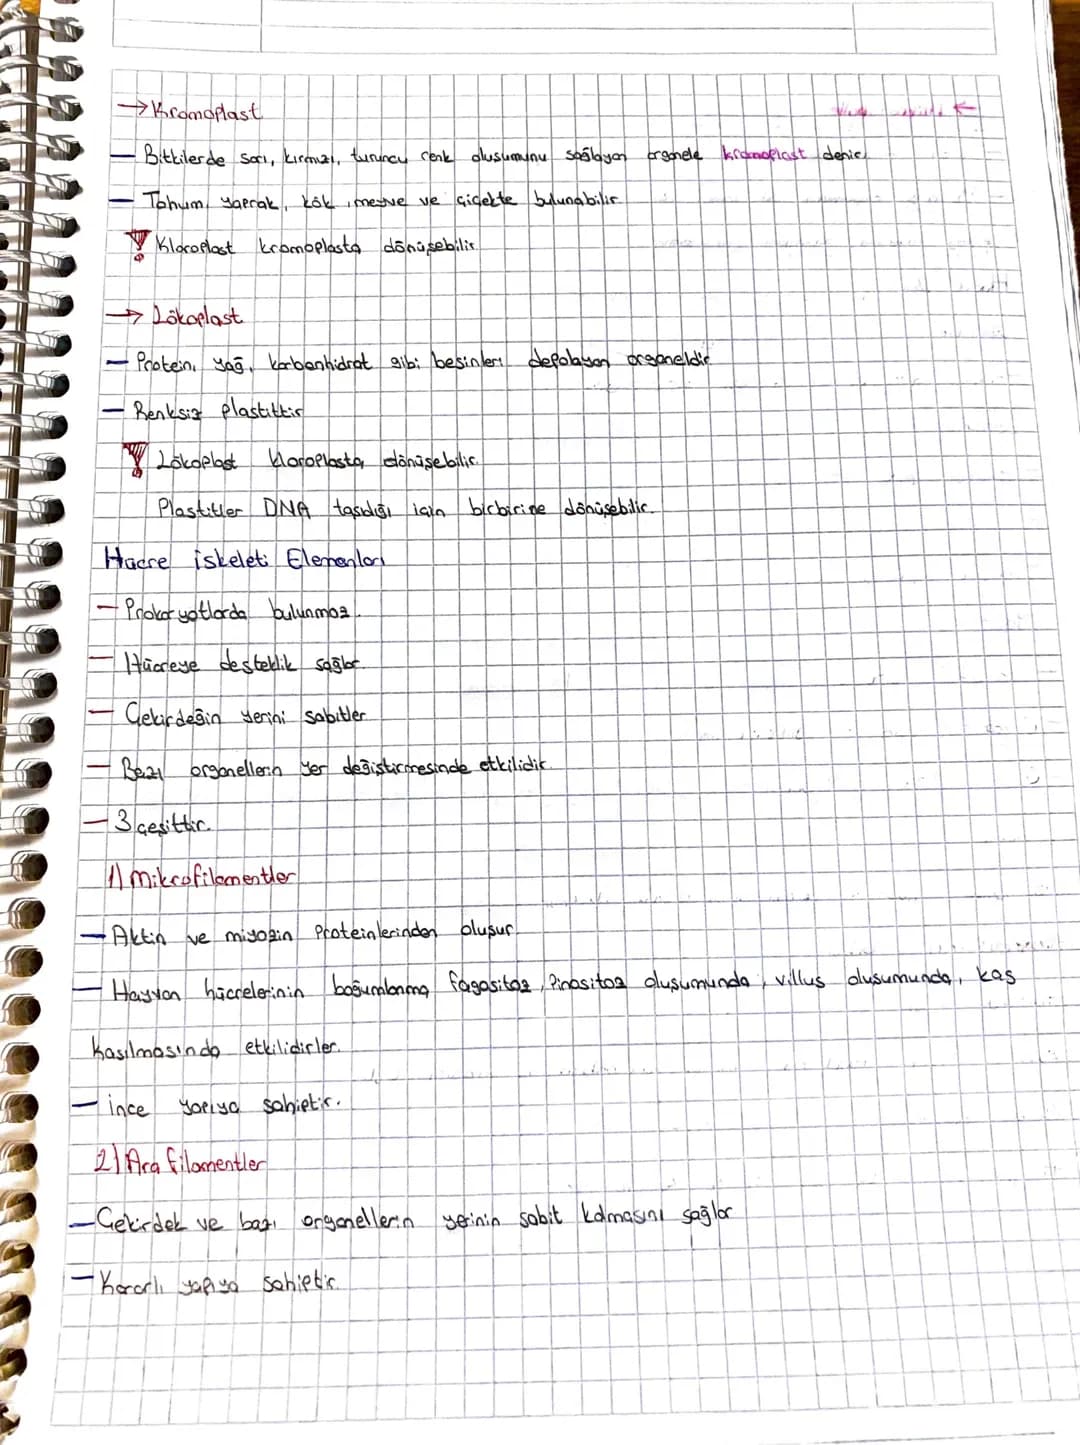 → Kromoplast
— Bitkilerde sarı, kırmızı, turuncu renk oluşumunu sağlayan organele kromoplast denir.
— Tohum, yaprak, kök, meyve ve çiçekte bulunabilir.
Kloroplast kromoplasta dönüşebilir.
→ Lökoplast
— Protein, yağ, karbonhidrat gibi besinleri depolayan organeldir.
— Renksiz plastittir
Lökoplast kloroplasta dönüşebilir.
Plastitler DNA taşıdığı için birbirine dönüşebilir.
Hücre İskeleti Elemanları
— Prokaryotlarda bulunmaz.
— Hücreye desteklik sağlar.
— Çekirdeğin yerini sabitler
— Bazı organellerin yer değiştirmesinde etkilidir.
— 3 çeşittir.
1) Mikrofilamentler
— Aktin ve miyozin proteinlerinden oluşur.
— Hayvan hücrelerinin boğumlanma, fagositoz, Pinositoz oluşumunda, villus oluşumunda, kas
kasılmasında etkilidirler.
— ince yapıya sahiptir.
2) Ara filamentler
— Çekirdek ve bazı organellerin yerinin sabit kalmasını sağlar
— Kararlı yapıya sahiptir.